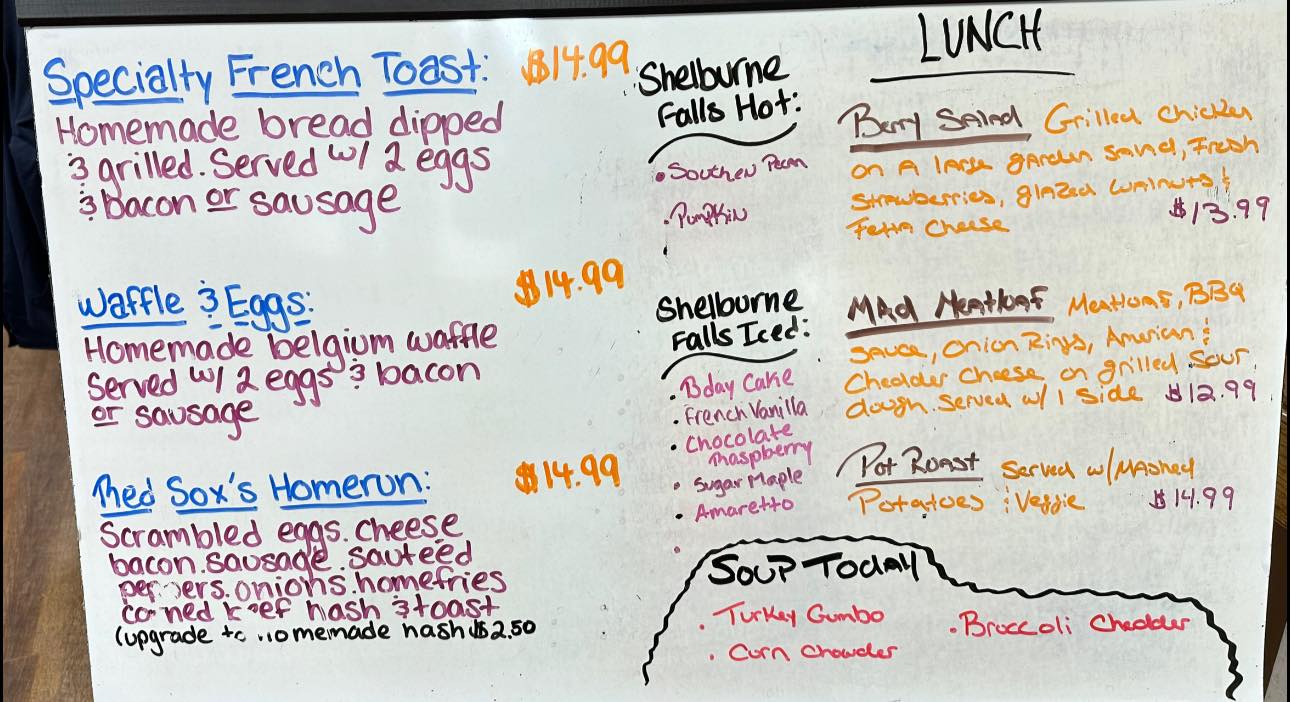 Specialty French Toast: $14.99
Homemade bread dipped
& grilled. Served w/ 2 eggs
& bacon or sausage
Waffle & Eggs: $14.99
Homemade belgium waffle
Served w/ 2 eggs & bacon
or sausage
Red Sox's Homerun: $14.99
Scrambled eggs. cheese
bacon. sausage. sauteed
peppers. onions. homefries
corned beef hash & toast
(upgrade to homemade hash $2.50
Shelburne
Falls Hot:
• Southern Pecan
• Pumpkin
•
Shelburne
Falls Iced:
• Bday Cake
• French Vanilla
• Chocolate
Raspberry
• Sugar Maple
• Amaretto
•
LUNCH
Berry Salad Grilled Chicken
on A large garden salad, Fresh
Strawberries, glazed walnuts &
Fetta Cheese $13.99
Mad Meatloaf Meatloaf, BBQ
Sauce, Onion Rings, American &
Cheddar Cheese on grilled Sour
dough. Served w/ 1 side $12.99
Pot Roast Served w/ Mashed
Potatoes & Veggie $14.99
Soup Today
• Turkey Gumbo
• Corn Chowder
• Broccoli Cheddar